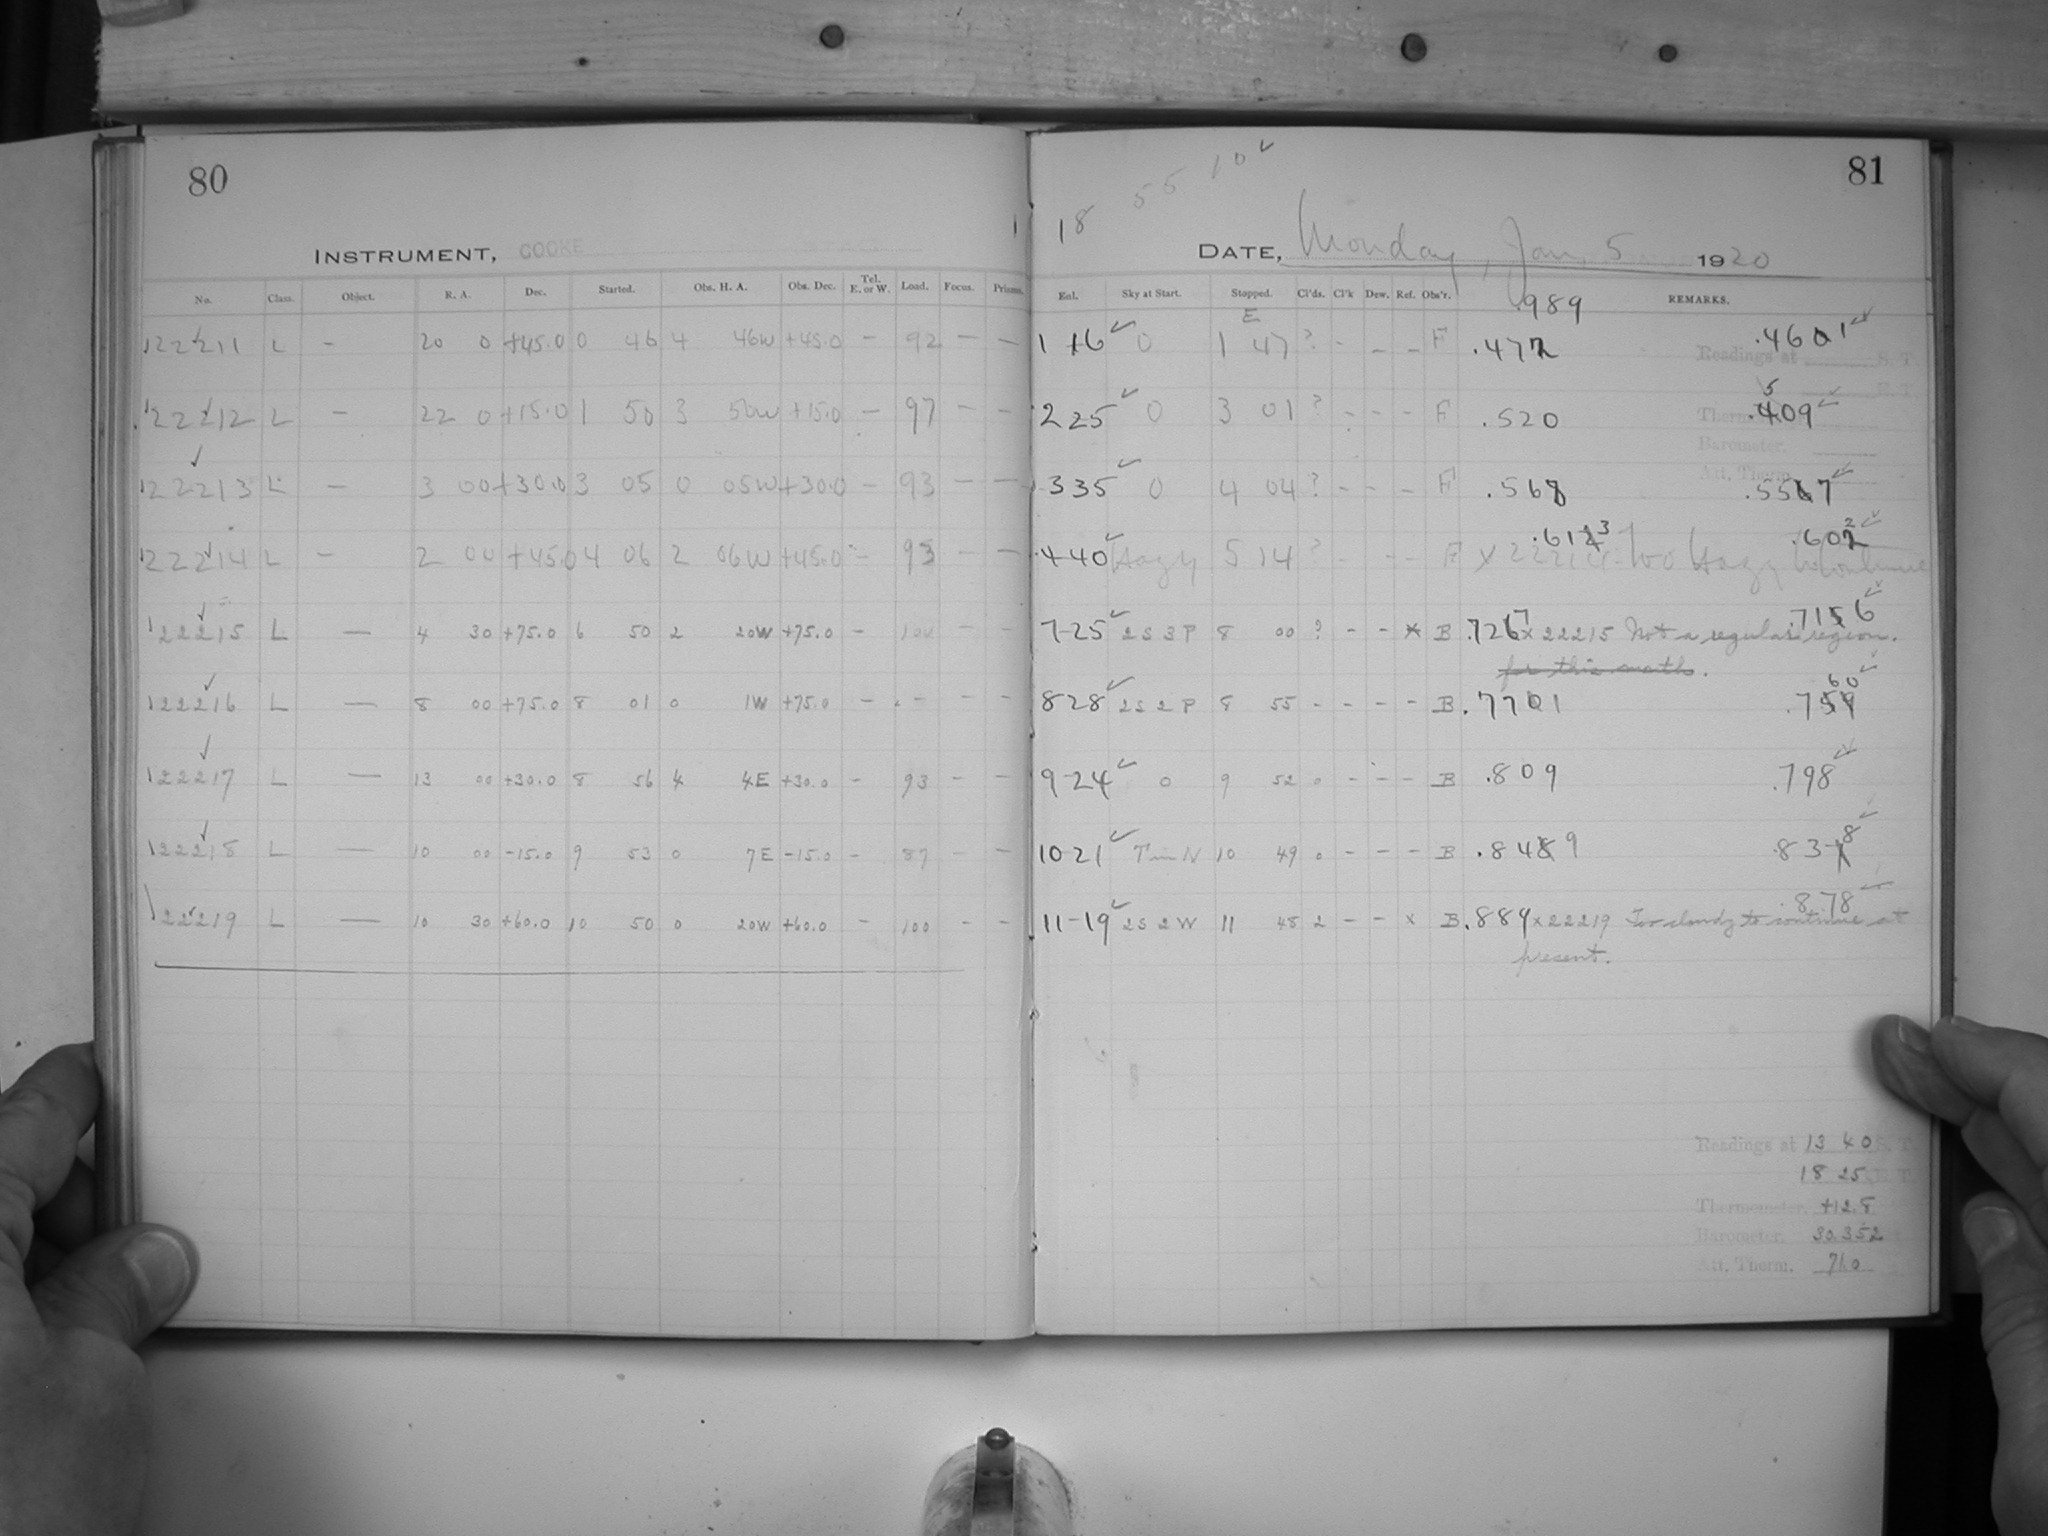 80
INSTRUMENT, COOKE
No. Class. Object. R. A. Dec. Started. Obs. H. A. Obs. Dec. Tel. E. or W. Load. Focus. Prisms.
22211 L - 20 0 +45.0 0 46 4 46W +45.0 - 92 - -
22212 L - 22 0 +15.0 1 50 3 50W +15.0 - 97 - -
22213 L - 3 00 +30.0 3 05 0 05W +30.0 - 93 - -
22214 L - 2 00 +45.0 4 06 2 06W +45.0 - 93 - -
22215 L — 4 30 +75.0 6 50 2 20W +75.0 - 100 - -
22216 L — 8 00 +75.0 8 01 0 1W +75.0 - - - -
22217 L — 13 00 +30.0 8 56 4 4E +30.0 - 93 - -
22218 L — 10 00 -15.0 9 53 0 7E -15.0 - 87 - -
22219 L — 10 30 +60.0 10 50 0 20W +60.0 - 100 - -
81
55 10 ✓
18
DATE, Monday, Jan. 5 1920
Enl. Sky at Start. Stopped. Cl'ds. Cl'k Dew. Ref. Obs'r. REMARKS.
.989
E
1 16 ✓ 0 1 47 ? - - - F .472 .4601 ✓
Readings at S. T.
E. T.
5
2 25 ✓ 0 3 01 ? - - - F .520 .409 ✓
Thermometer.
Barometer.
Att. Therm.
3 35 ✓ 0 4 04 ? - - - F .568 .5567 ✓
.6123 .602 ✓
4 40 ✓ Hazy 5 14 ? - - - F x 22214 Too Hazy to Continue
.7156 ✓
7-25 ✓ 2 S 3 P 8 00 ? - - x B .7267 x 22215 Not a regular region.
for this month.
60 ✓
8 28 ✓ 2 S 2 P 8 55 - - - - B .7701 .759
9-24 ✓ 0 9 52 0 - - - B .809 .798 ✓
10-21 ✓ Thin N 10 49 0 - - - B .8489 .838 ✓
.878 ✓
11-19 ✓ 2 S 2 W 11 48 2 - - x B .889 x 22219 Too cloudy to continue at
present.
Readings at 13 40 S. T.
18 25 E. T.
Thermometer. +12.8
Barometer. 30.352
Att. Therm. 76.0